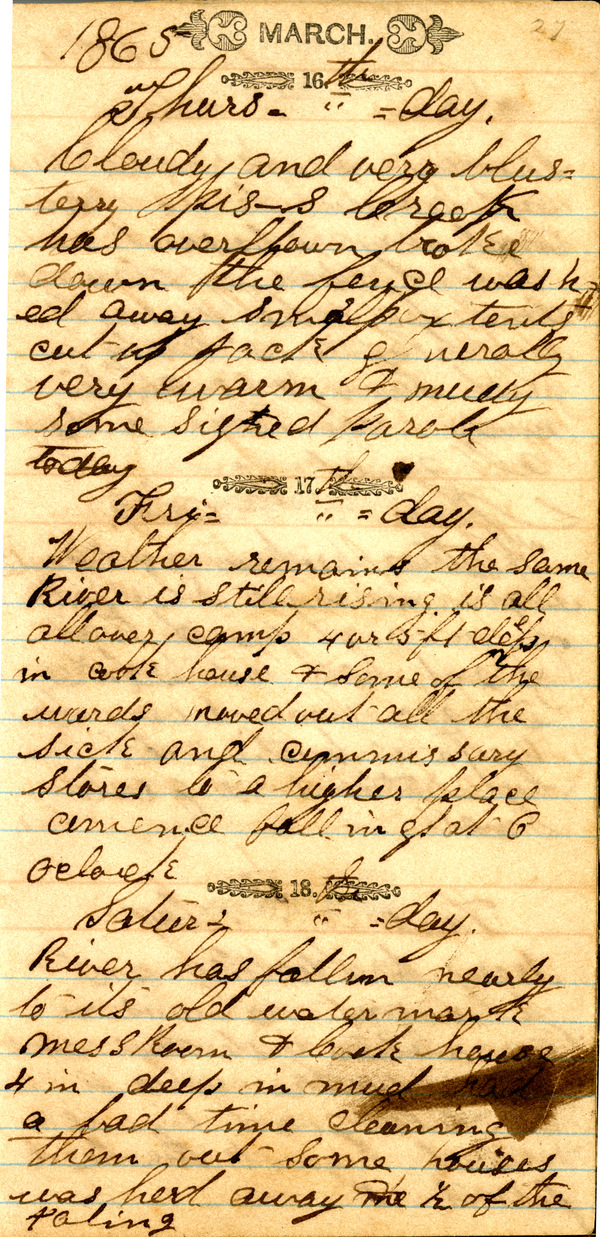 1865 MARCH. 27
16. th
Thurs- " =day.
Cloudy and very blus=
terry Spis-s Creek
has overflown broke
down the fence wash=
ed away small pox tents
cut up Jack generally
very warm & muddy
some signed parole
today
17. th
Fri= " =day.
Weather remains the same
River is still rising is all
all over camp 4 or 5 ft deep
in cook house & some of the
wards moved out all the
sick and commissary
stores to a higher place
comence falling at 6
oclock
18. th
Satur= " =day.
River has fallen nearly
to its old water mark
mess Room & Cook house
4 in deep in mud had
a bad time cleaning
them out some houses
was hed away the ½ of the